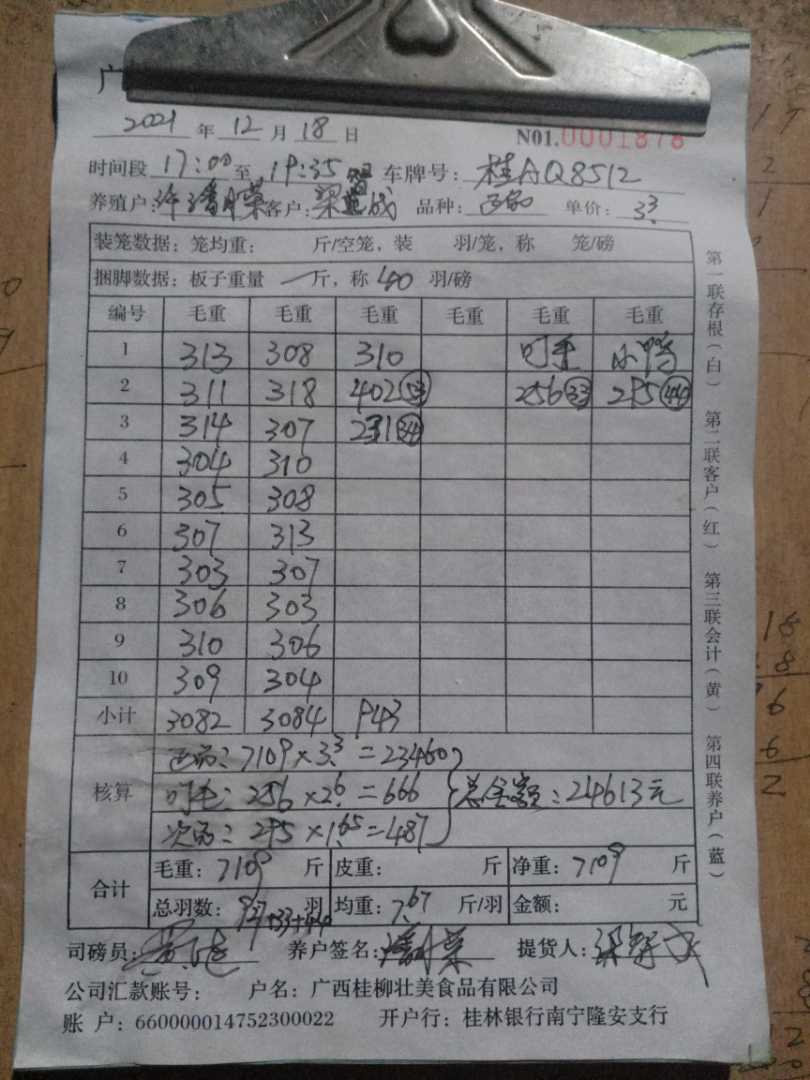 广
2021 年 12 月 18 日 N01.0001878
时间段 17:00 至 19:35 车牌号: 桂AQ8512
养殖户: 客户: 梁 成 品种: 正品 单价: 3.3
装笼数据: 笼均重: 斤/空笼, 装 羽/笼, 称 笼/磅
捆脚数据: 板子重量 一 斤, 称 40 羽/磅
编号 毛重 毛重 毛重 毛重 毛重 毛重
1 313 308 310 叮毛 小鸭
2 311 318 402 53 256 33 295 44
3 314 307 231 34
4 304 310
5 305 308
6 307 313
7 303 307
8 306 303
9 310 306
10 309 304
小计 3082 3084 943
核算
正品: 7109 × 3.3 = 23460
叮毛: 256 × 2.6 = 666
次品: 295 × 1.65 = 487
总金额: 24613元
合计
毛重: 7109 斤 皮重: 斤 净重: 7109 斤
总羽数: 927+33+44 羽 均重: 7.67 斤/羽 金额: 元
司磅员: 养户签名: 提货人:
公司汇款账号: 户名: 广西桂柳壮美食品有限公司
账 户: 660000014752300022 开户行: 桂林银行南宁隆安支行
第一联存根(白) 第二联客户(红) 第三联会计(黄) 第四联养户(蓝)